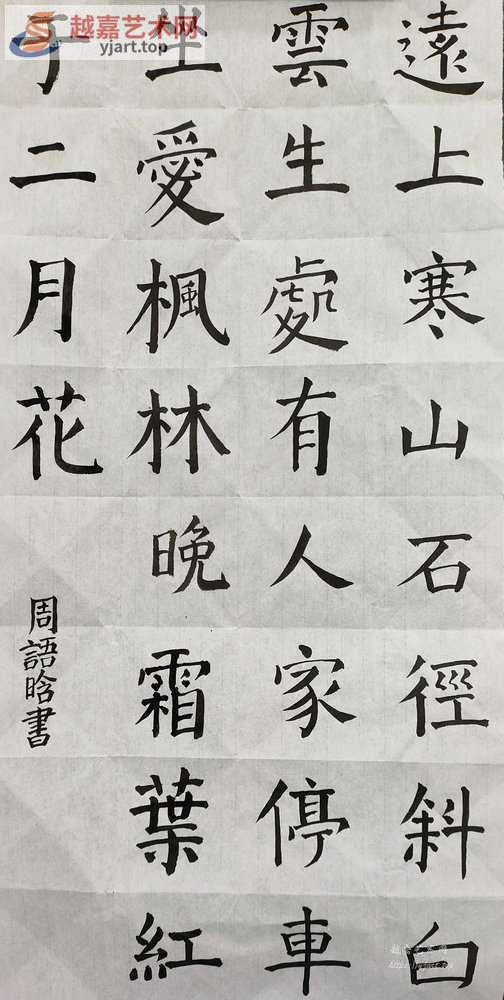 越嘉艺术网
yjart.top
遠上寒山石徑斜白
雲生處有人家停車
坐愛楓林晚霜葉紅
于二月花
周語晗書